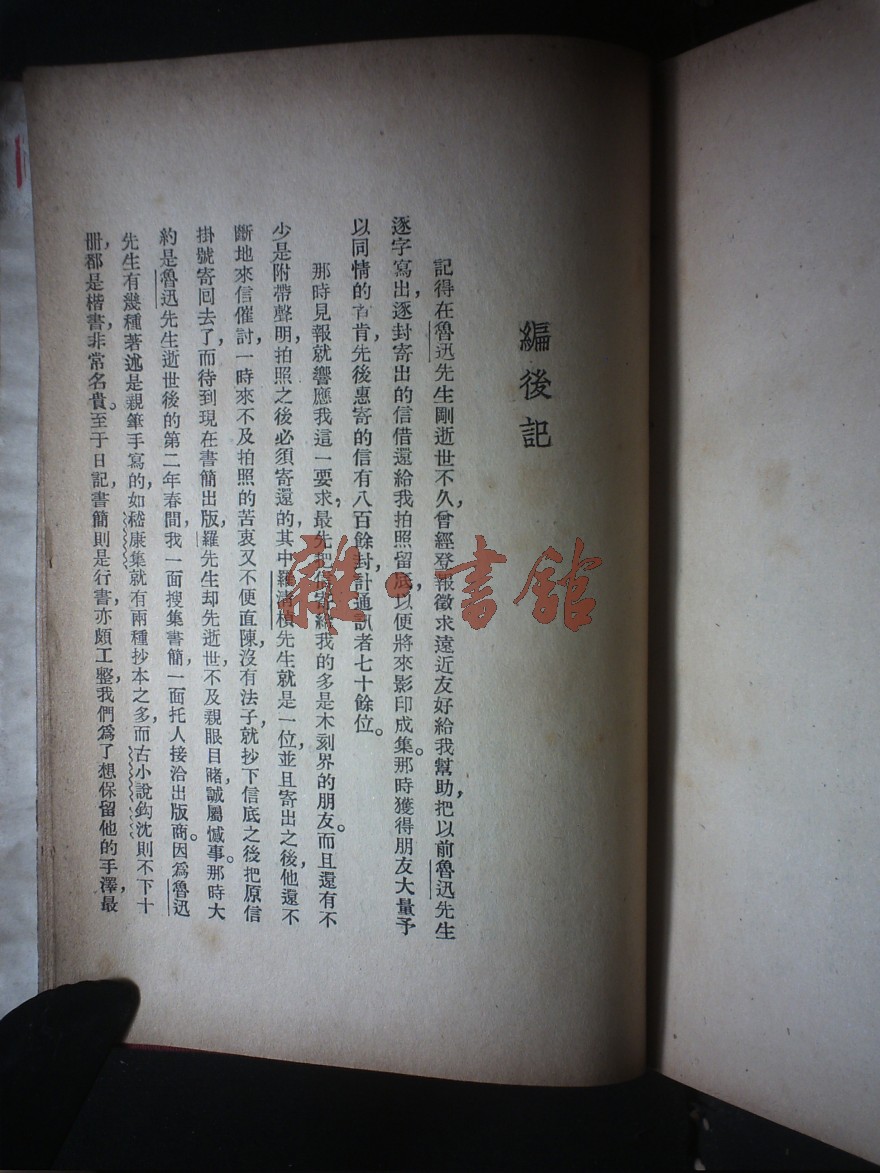 編後記
記得在魯迅先生剛逝世不久，曾經登報徵求遠近友好給我幫助，把以前魯迅先生
逐字寫出，逐封寄出的信借還給我拍照留底，以便將來影印成集。那時獲得朋友大量予
以同情的首肯，先後惠寄的信有八百餘封，計通訊者七十餘位。
那時見報就響應我這一要求，最先把信寄給我的多是木刻界的朋友。而且還有不
少是附帶聲明拍照之後必須寄還的，其中羅清楨先生就是一位，並且寄出之後，他還不
斷地來信催討，一時來不及拍照的苦衷又不便直陳，沒有法子，就抄下信底之後，把原信
掛號寄回去了，而待到現在書簡出版，羅先生却先逝世，不及親眼目睹，誠屬憾事。那時大
約是魯迅先生逝世後的第二年春間，我一面搜集書簡，一面托人接洽出版商。因爲魯迅
先生有幾種著述是親筆手寫的，如嵇康集就有兩種抄本之多，而古小說鈎沈則不下十
冊，都是楷書，非常名貴。至于日記，書簡則是行書，亦頗工整，我們爲了想保留他的手澤，最
雜·書館